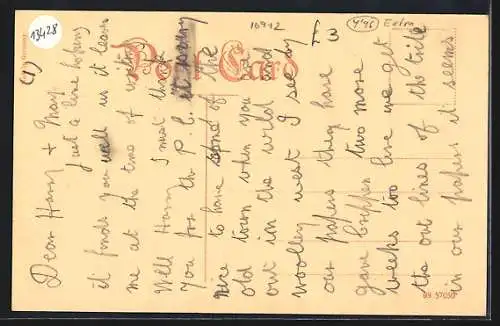 13428
(1)
10912
4'46 Extra
Post Card
Dear Harry & Mary
just a line hoping
it finds you well us it leaves
me at the time of writing
Well Harry I must thank
you for the P.C. it very
nice to have of the
old town when you are
out in the wild and
woolley west I see by
our papers they have
gave Crippen two more
weeks too live we get
the out lines of the tile
in our papers it seems